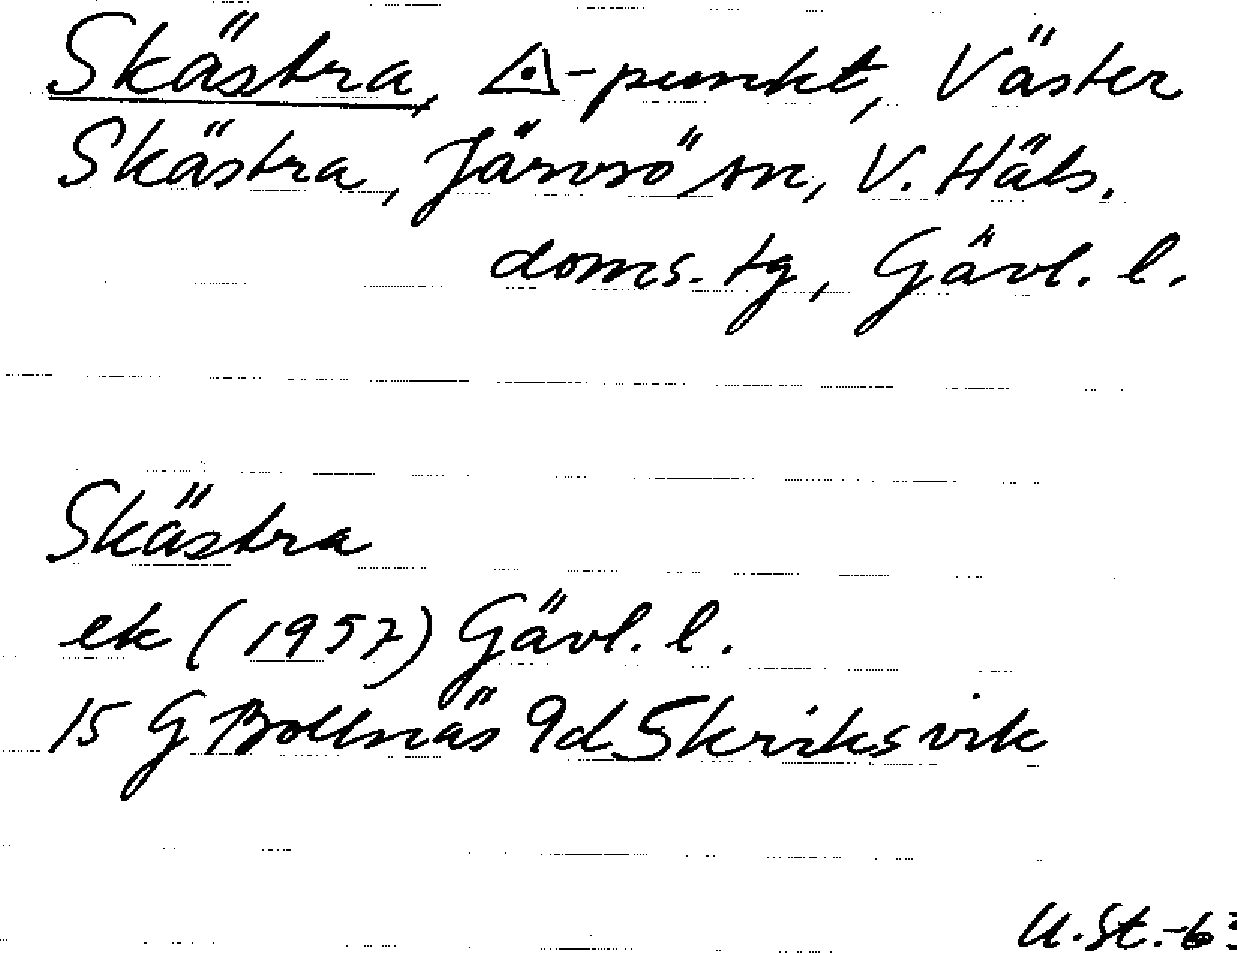 Skästra, △-punkt, Väster
Skästra, Järvsö sn, V. Häls.
doms. tg, Gävl. l.
Skästra
ek (1957) Gävl. l.
15 G Bollnäs 9d Skriksvik
U.St.-63